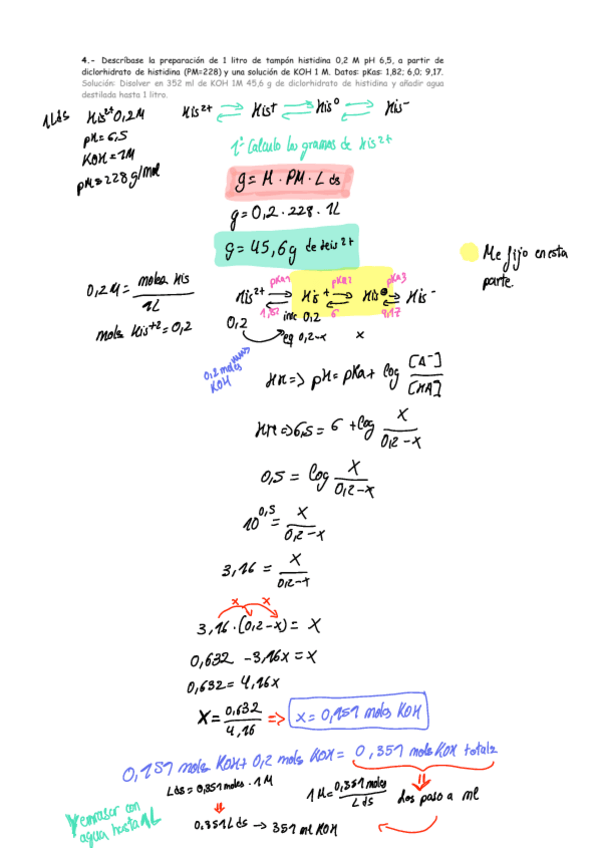 4.- Descríbase la preparación de 1 litro de tampón histidina 0,2 M pH 6,5, a partir de
diclorhidrato de histidina (PM=228) y una solución de KOH 1 M. Datos: pKas: 1,82; 6,0; 9,17.
Solución: Disolver en 352 ml de KOH 1M 45,6 g de diclorhidrato de histidina y añadir agua
destilada hasta 1 litro.
1Lds His²⁺ 0,2M
pH=6,5
KOH=1M
PM=228g/mol
His²⁺ ⇌ His⁺ ⇌ His⁰ ⇌ His⁻
1º Calculo los gramos de His²⁺
g = M · PM · L ds
g = 0,2 · 228 · 1L
g = 45,6g de His²⁺
Me fijo en esta
parte.
0,2M = moles His / 1L
moles His⁺² = 0,2
pKa1 pKa2 pKa3
His²⁺ ⇌ His⁺ ⇌ His⁰ ⇌ His⁻
1,82 6 9,17
0,2 inic 0,2
eq 0,2-x x
0,2 moles
KOH
HH => pH = pKa + log [A⁻]/[HA]
HH => 6,5 = 6 + log x/0,2-x
0,5 = log x/0,2-x
10^0,5 = x/0,2-x
3,16 = x/0,2-x
x x
3,16 · (0,2-x) = x
0,632 - 3,16x = x
0,632 = 4,16x
x = 0,632/4,16 => x = 0,151 moles KOH
0,151 moles KOH + 0,2 moles KOH = 0,351 moles KOH totales
Lds = 0,351 moles · 1M
1M = 0,351 moles / L ds
Los paso a ml
0.351 L ds → 351 ml KOH
Y enrasar con
agua hasta 1L